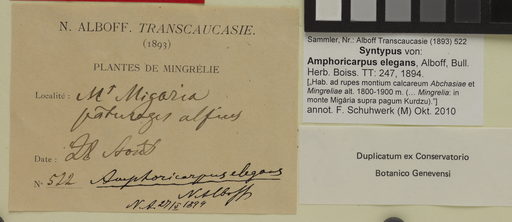 N. ALBOFF. TRANSCAUCASIE.
(1893)
PLANTES DE MINGRÉLIE
Localité : Mt Migaria
pâturages alpins
Date : 28 Août
No 522 Amphoricarpus elegans
N. Alboff
N.A. 1894
Sammler, Nr.: Alboff Transcaucasie (1893) 522
Syntypus von:
Amphoricarpus elegans, Alboff, Bull.
Herb. Boiss. TT: 247, 1894.
[„Hab. ad rupes montium calcareum Abchasiae et
Mingreliae alt. 1800-1900 m. (… Mingrelia: in
monte Migária supra pagum Kurdzu).”]
annot. F. Schuhwerk (M) Okt. 2010
Duplicatum ex Conservatorio
Botanico Genevensi